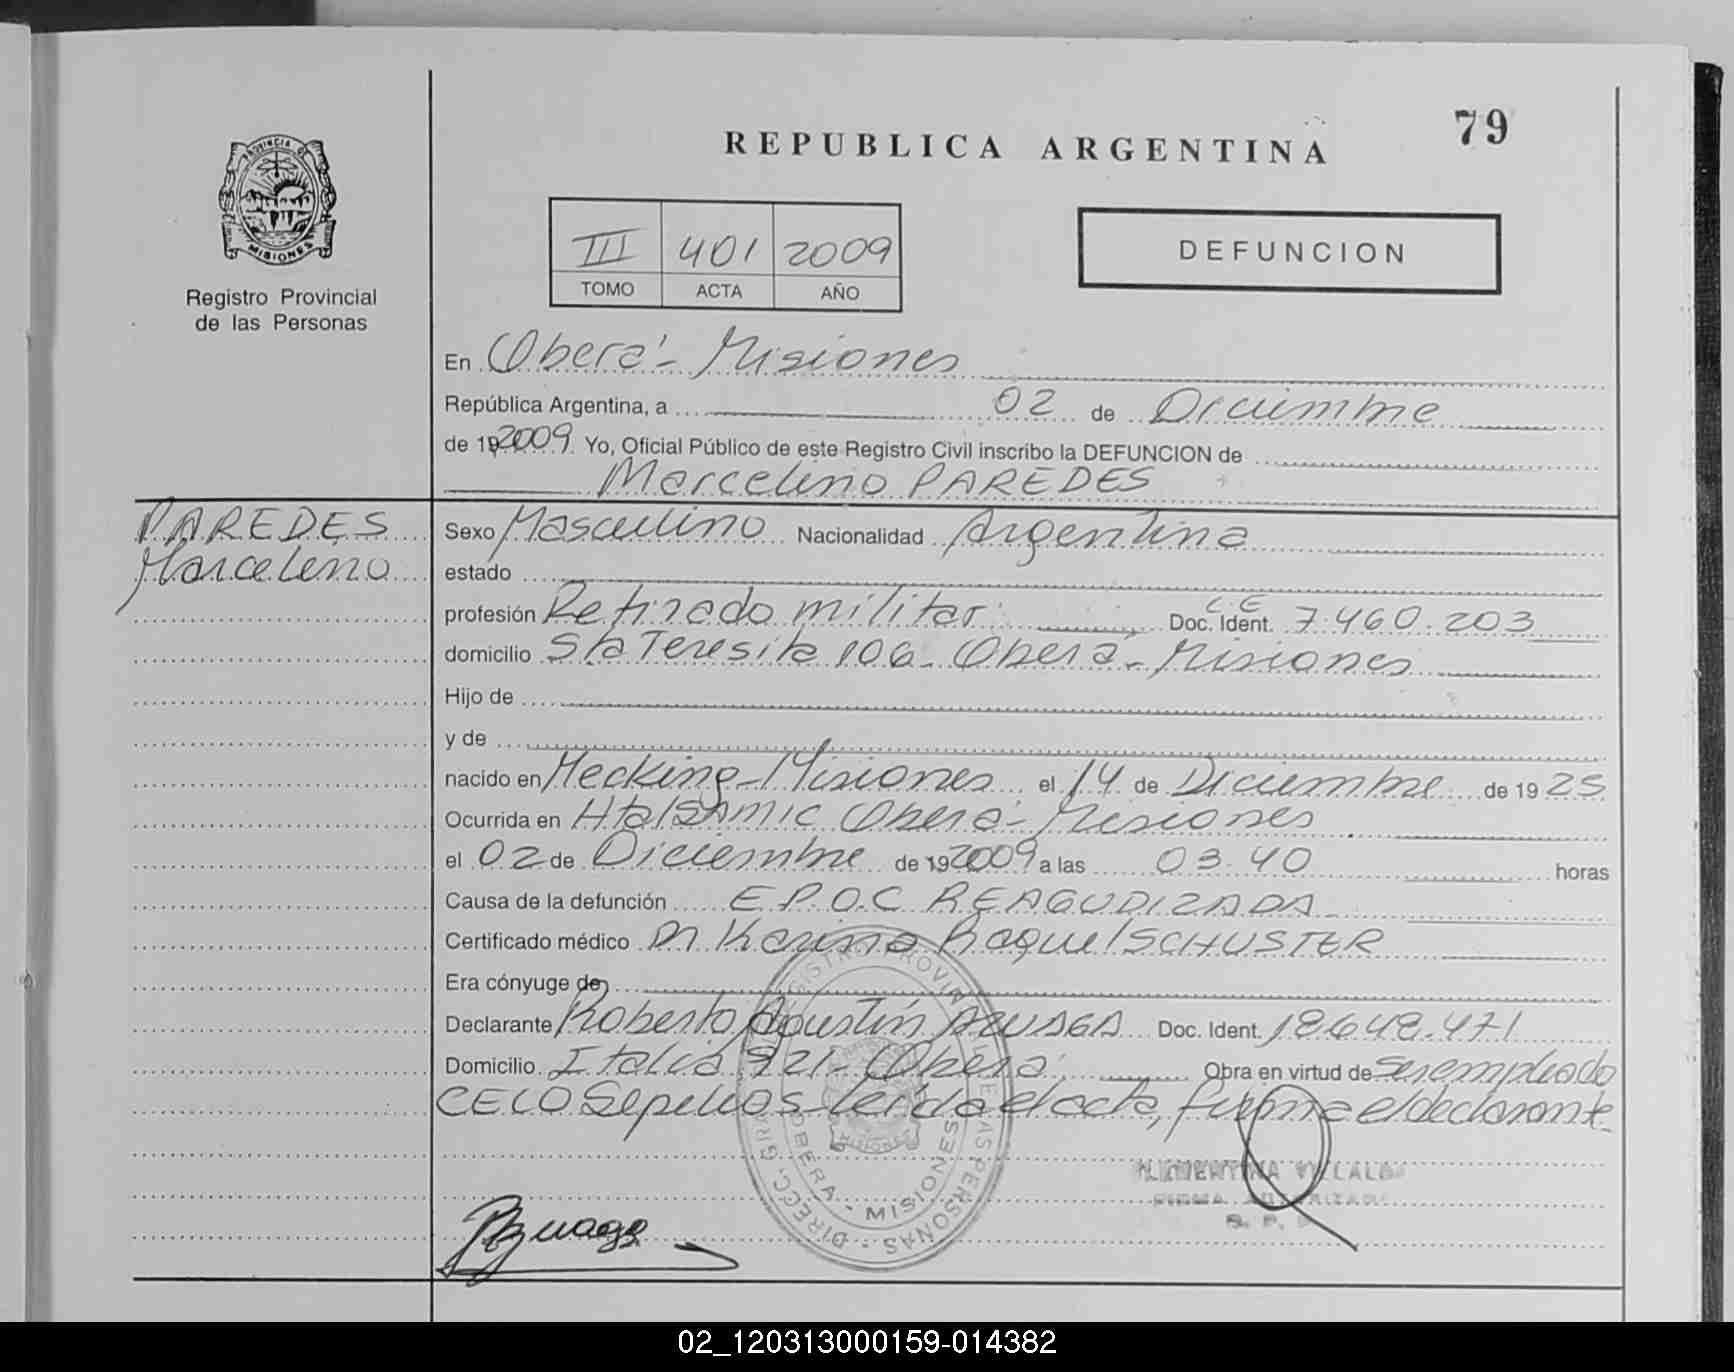 79
REPUBLICA ARGENTINA
PROVINCIA DE
MISIONES
Registro Provincial
de las Personas
III 401 2009
TOMO ACTA AÑO
DEFUNCION
En Oberá - Misiones
República Argentina, a 02 de Diciembre
de 19 2009 Yo, Oficial Público de este Registro Civil inscribo la DEFUNCION de
Marcelino PAREDES
PAREDES
Marcelino
Sexo Masculino Nacionalidad Argentina
estado
profesión Retirado militar Doc. Ident. L E 7.460.203
domicilio Sta Teresita 106 - Oberá - Misiones
Hijo de
y de
nacido en Mecking - Misiones el 14 de Diciembre de 19 25
Ocurrida en Htal SAMIC Oberá - Misiones
el 02 de Diciembre de 19 2009 a las 03.40 horas
Causa de la defunción E.P.O.C REAGUDIZADA
Certificado médico Dr Karina Raquel SCHUSTER
Era cónyuge de
Declarante Roberto Agustín AZUAGA Doc. Ident. 18.648.471
Domicilio Italia 921 - Oberá Obra en virtud de ser empleado
CELO Sepelios - leída el acta, firma el declarante
OBERA - MISIONES
VILLALBA
FIRMA AUTORIZADA
02_120313000159-014382